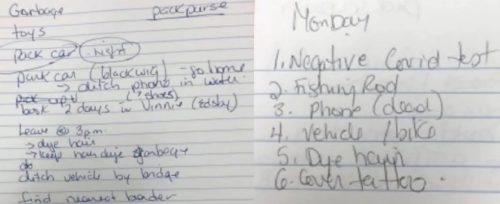 Garbage
packpurse
toys
Pack car night
park car (black wig) - go home
→ ditch phone in water
2 days in Vinnie
Leave @ 3pm
→ dye hair
→ keep hair dye garbage
ditch vehicle by bridge
find nearest border
Monday
1. Negative Covid test
2. Fishing Rod
3. Phone (dead)
4. Vehicle / bike
5. Dye hair
6. Cover tattoo.